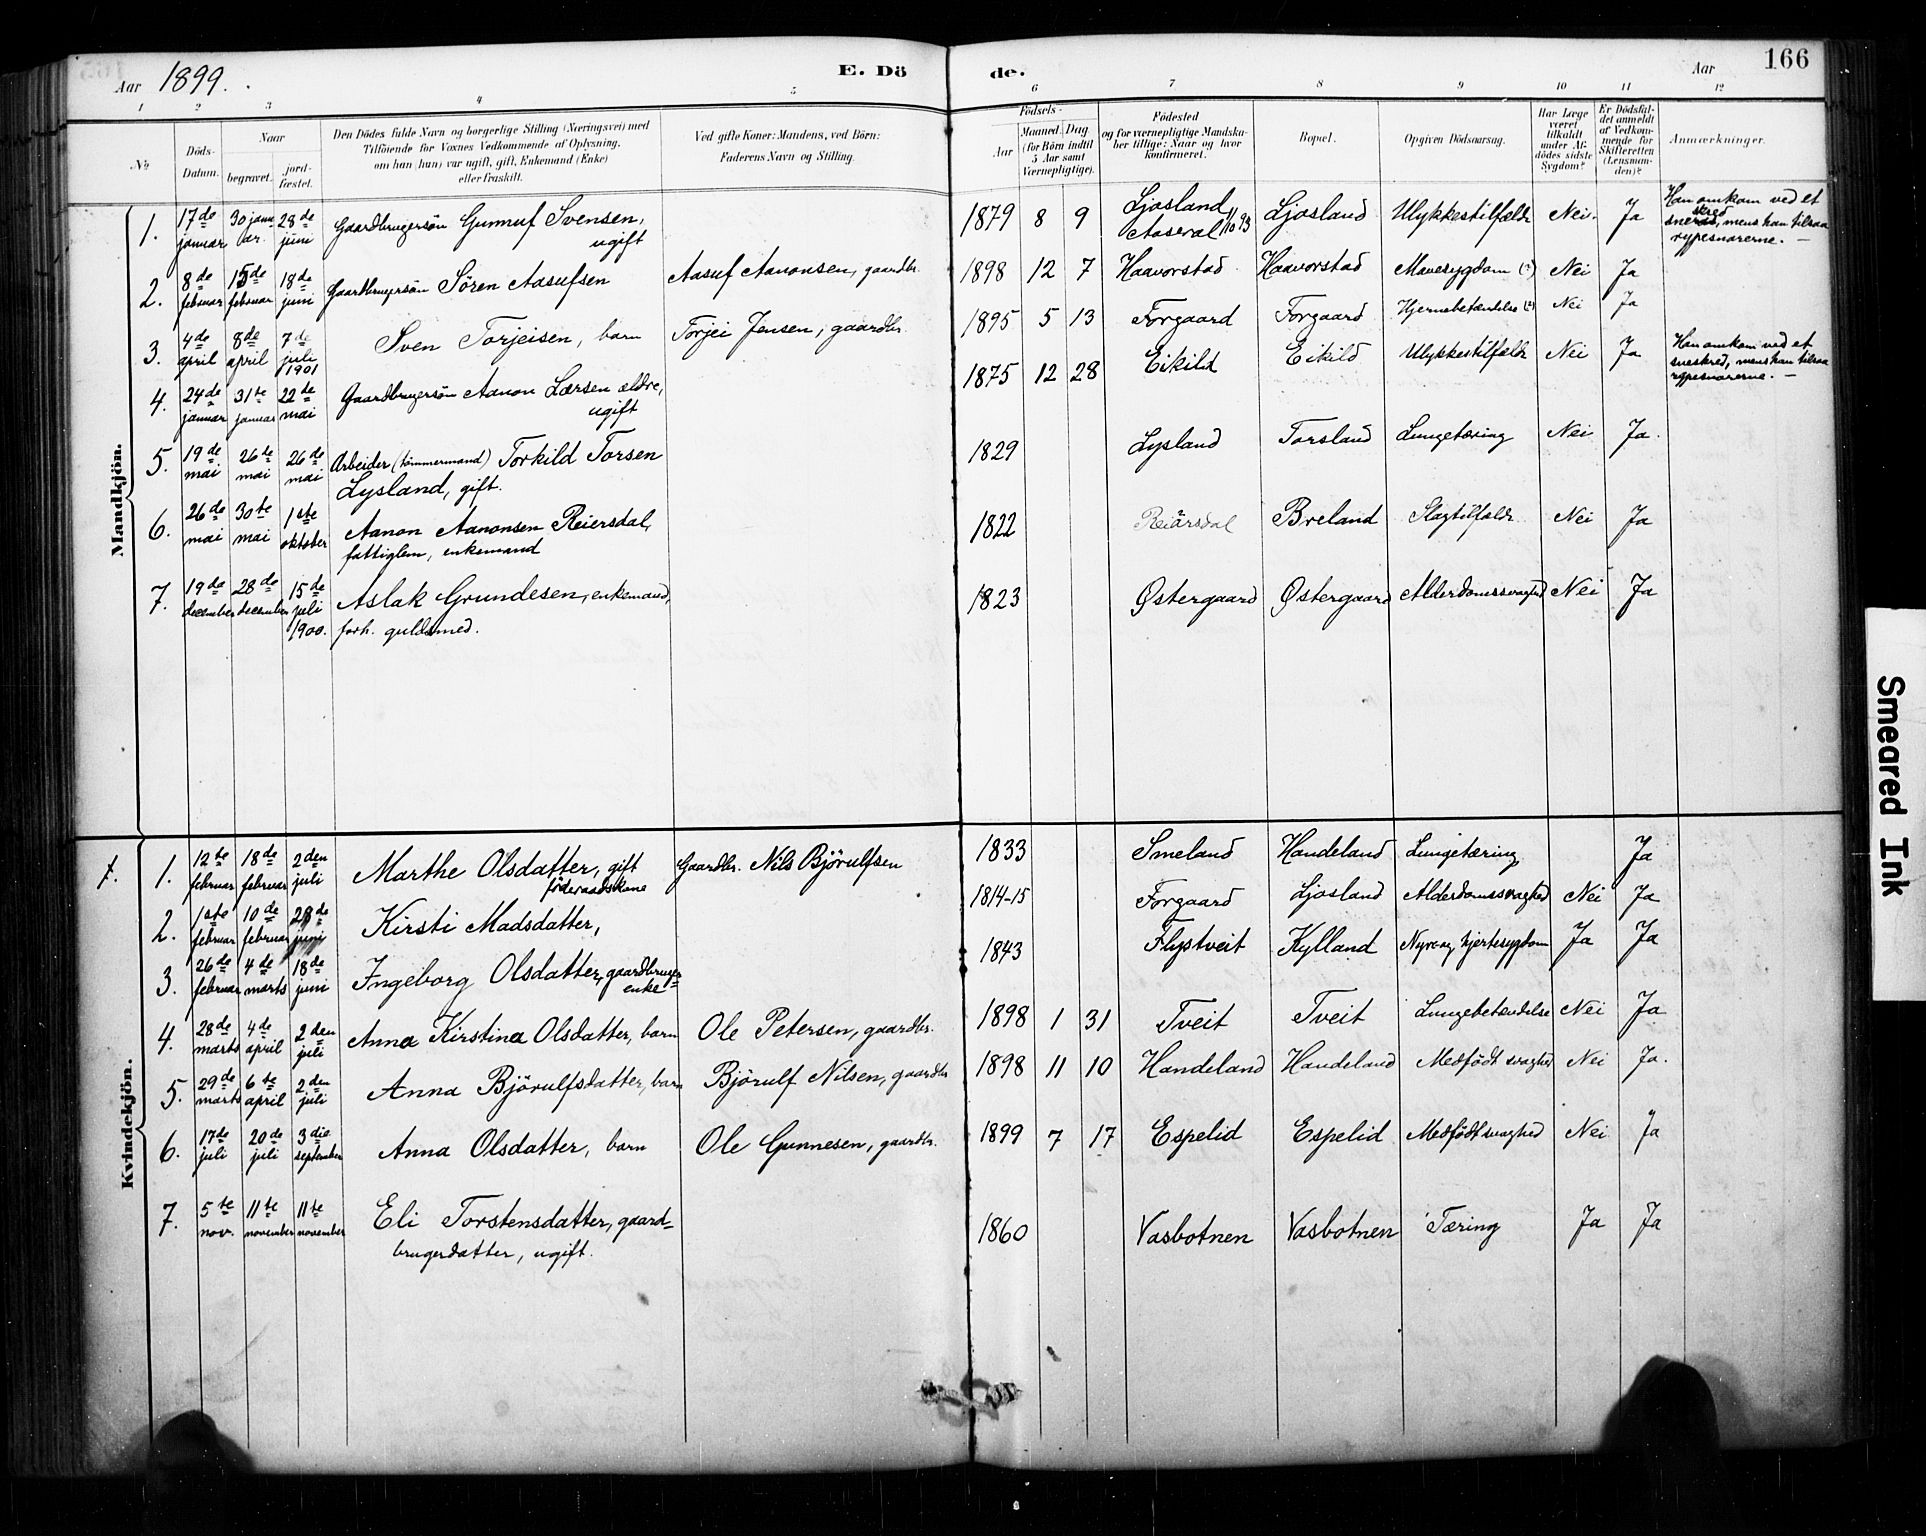 Aar 1899.
E. Döde.
Aar 166
1 2 3 4 5 6 7 8 9 10 11 12
No
Döds-Datum.
Naar
begravet.
jordfæstet.
Den Dödes fulde Navn og borgerlige Stilling (Næringsvei) med
Tilföiende for Voxnes Vedkommende af Oplysning,
om han (hun) var ugift, gift, Enkemand (Enke)
eller fraskilt.
Ved gifte Koner: Mandens, ved Börn:
Faderens Navn og Stilling.
Födsels-
Aar
Maaned. Dag
(for Börn indtil
5 Aar samt
Værnepligtige).
Födested
og for værnepligtige Mandskaber tillige: Naar og hvor
konfirmeret.
Bopæl.
Opgiven Dödsaarsag.
Har Læge
været
tilkaldt
under Afdödes sidste
Sygdom?
Er Dödsfaldet anmeldt
af Vedkommende for
Skifteretten
(Lensmanden)?
Anmærkninger.
Mandkjön.
1. 17de januar 30 januar. 28de juni Gaardbrugersön Gunnuf Svensen, ugift 1879 8 9 Ljosland Aaseral 1/10 93 Ljosland Ulykkestilfælde Nei. Ja Han omkom ved et
sneskred, mens han tilsaa
rypesnarerne. —
2. 8de februar 15de februar 18de juni Gaardbrugersön Sören Aasufsen Aasuf Aanonsen, gaardbr. 1898 12 7 Haavorstad Haavorstad Mavesygdom (?) Nei Ja
3. 4de april 8de april 7de juli 1901 Sven Torjeisen, barn Torjei Jensen, gaardbr. 1895 5 13 Forgaard Forgaard Hjernebetændelse (?) Nei Ja
4. 24de januar 31te januar 22de mai Gaardbrugersön Aanon Larsen ældre, ugift 1875 12 28 Eikild Eikild Ulykkestilfælde Nei Ja Han omkom ved et
sneskred, mens han tilsaa
rypesnarerne. —
5. 19de mai 26de mai 26de mai Arbeider (tömmermand) Torkild Torsen
Lysland, gift. 1829 Lysland Torsland Lungetæring Nei Ja.
6. 26de mai 30te mai 1ste oktober Aanon Aanonsen Reiersdal,
fattiglem, enkemand 1822 Reiärsdal Breland Slagtilfælde Nei Ja
7. 19de december 28de december 15de juli 1900. Aslak Grundesen, enkemand,
forh. guldsmed. 1823 Østergaard Østergaard Alderdomssvaghed Nei Ja
Kvindekjön.
1. 1. 12te februar 18de februar 2den juli Marthe Olsdatter, gift
föderaadskone Gaardbr. Nils Björulfsen 1833 Smeland Handeland Lungetæring Ja
2. 1ste februar 10de februar juni Kirsti Madsdatter, 1814-15 Forgaard Ljosland Alderdomssvaghed Nei Ja
3. 26de februar 4de marts 18de juni Ingeborg Olsdatter, gaardbruger=
enke 1843 Flystveit Kylland Nyre og hjertesygdom Ja Ja
4. 28de marts 4de april 2den juli Anna Kirstina Olsdatter, barn Ole Petersen, gaardbr. 1898 1 31 Tveit Tveit Lungebetændelse Nei Ja
5. 29de marts 6te april 2den juli Anna Björulfsdatter, barn Björulf Nilsen, gaardbr 1898 11 10 Handeland Handeland Medfödt svaghed Nei Ja.
6. 17de juli 20de juli 3die september Anna Olsdatter, barn Ole Gunnesen, gaardbr. 1899 7 17 Espelid Espelid Medfödt svaghed Nei Ja
7. 5te nov. 11te november 11te november Eli Torstensdatter, gaard=
brugerdatter, ugift. 1860 Vasbotnen Vasbotnen Tæring Ja Ja
Smeared Ink